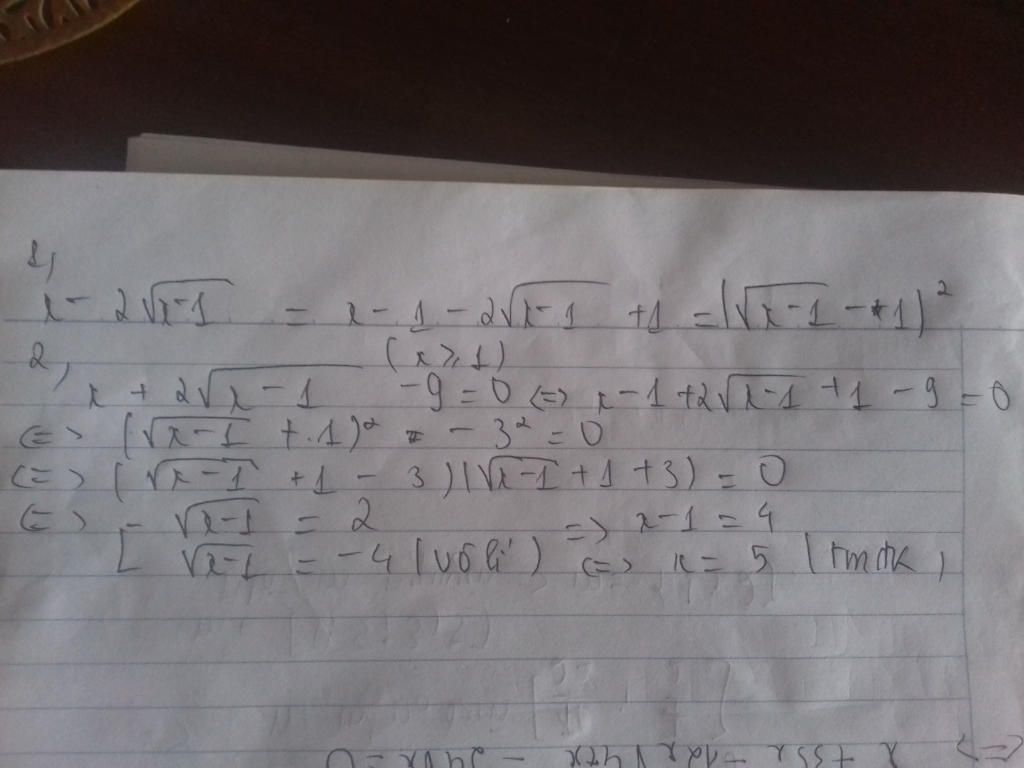 1,
x - 2√(x-1) = x - 1 - 2√(x-1) + 1 = (√(x-1) - 1)²
2, (x ≥ 1)
x + 2√(x-1) - 9 = 0 <=> x - 1 + 2√(x-1) + 1 - 9 = 0
<=> (√(x-1) + 1)² - 3² = 0
<=> (√(x-1) + 1 - 3)(√(x-1) + 1 + 3) = 0
<=> [ √(x-1) = 2 => x - 1 = 4
√(x-1) = -4 (vô lí) <=> x = 5 (tmđk)